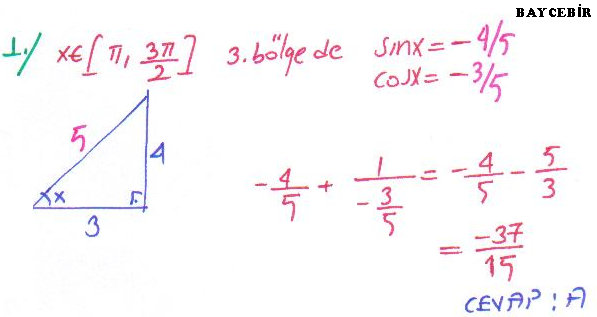 BAYCEBİR
1./ x∈[π, 3π/2] 3.bölgede sinx = -4/5
cosx = -3/5
5
4
x
3
-4/5 + 1/(-3/5) = -4/5 - 5/3
= -37/15
CEVAP : A